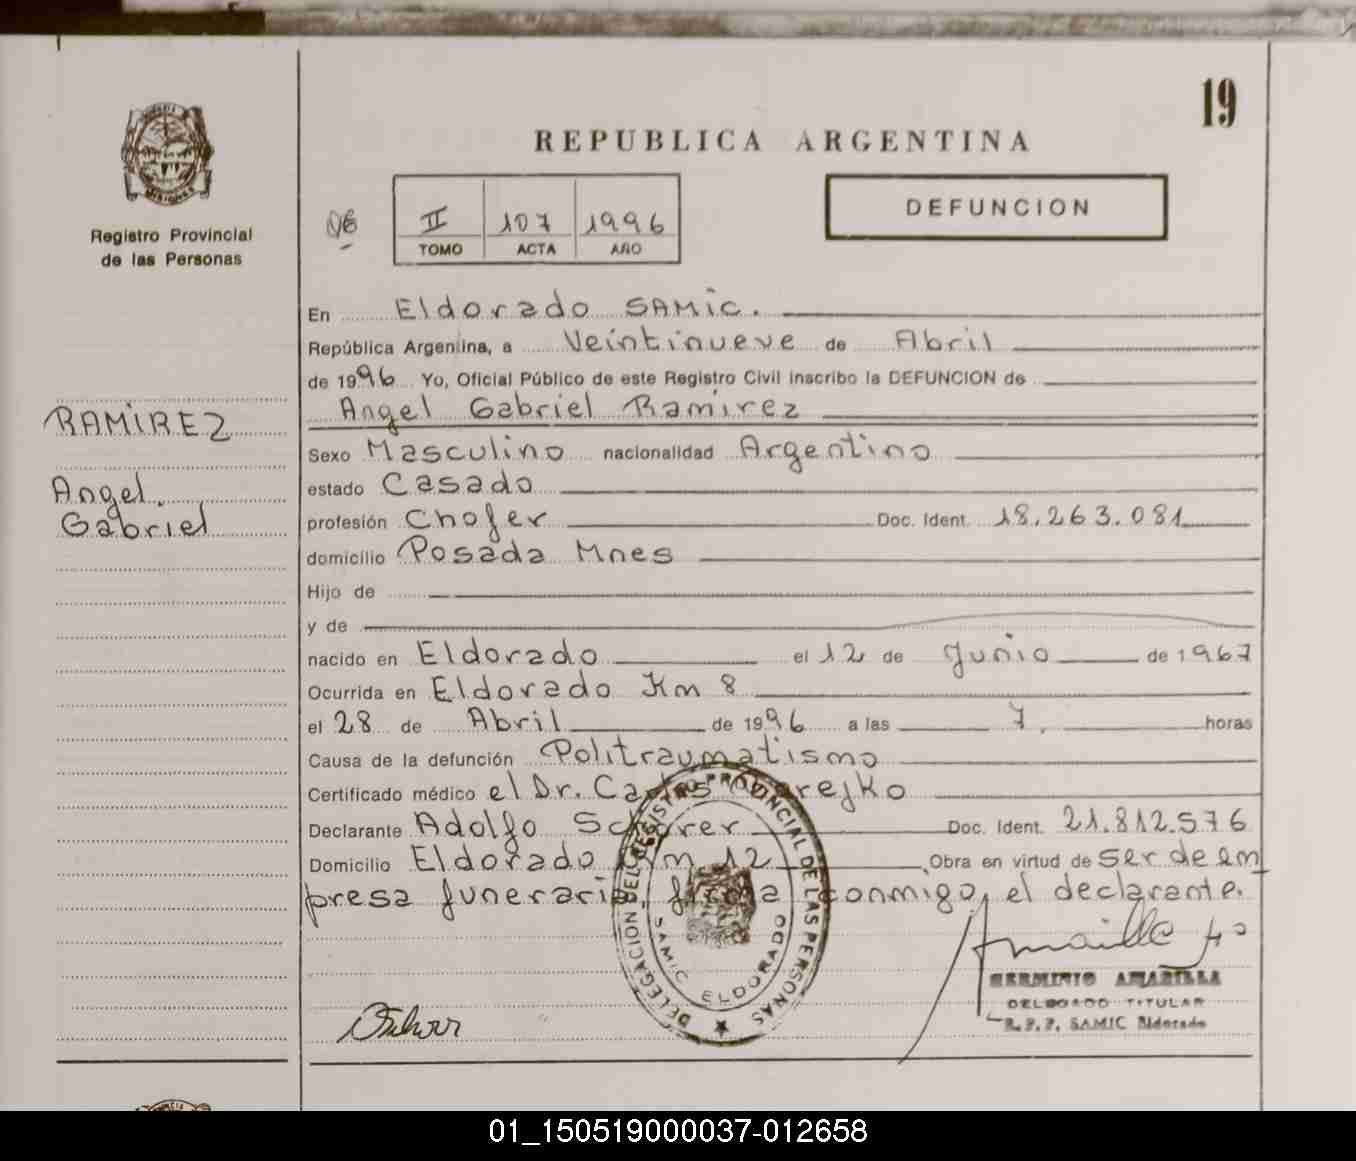 19
REPUBLICA ARGENTINA
MISIONES
Registro Provincial
de las Personas
II 107 1996
TOMO ACTA AÑO
DEFUNCION
En Eldorado SAMIC.
República Argentina, a Veintinueve de Abril
de 1996 Yo, Oficial Público de este Registro Civil inscribo la DEFUNCION de
Angel Gabriel Ramirez
RAMIREZ
Angel
Gabriel
Sexo Masculino nacionalidad Argentino
estado Casado
profesión Chofer Doc. Ident. 18.263.081
domicilio Posada Mnes
Hijo de
y de
nacido en Eldorado el 12 de Junio de 1967
Ocurrida en Eldorado Km 8
el 28 de Abril de 1996 a las 7. horas
Causa de la defunción Politraumatismo
Certificado médico el Dr. Carlos
Declarante Adolfo Scherer Doc. Ident. 21.812.576
Domicilio Eldorado Km 12 Obra en virtud de ser de em
presa funeraria, firma conmigo, el declarante.
DELEGACION DEL REGISTRO PROVINCIAL DE LAS PERSONAS
SAMIC ELDORADO
HERMINIO AMARILLA
DELEGADO TITULAR
R.P.P. SAMIC Eldorado
01_150519000037-012658